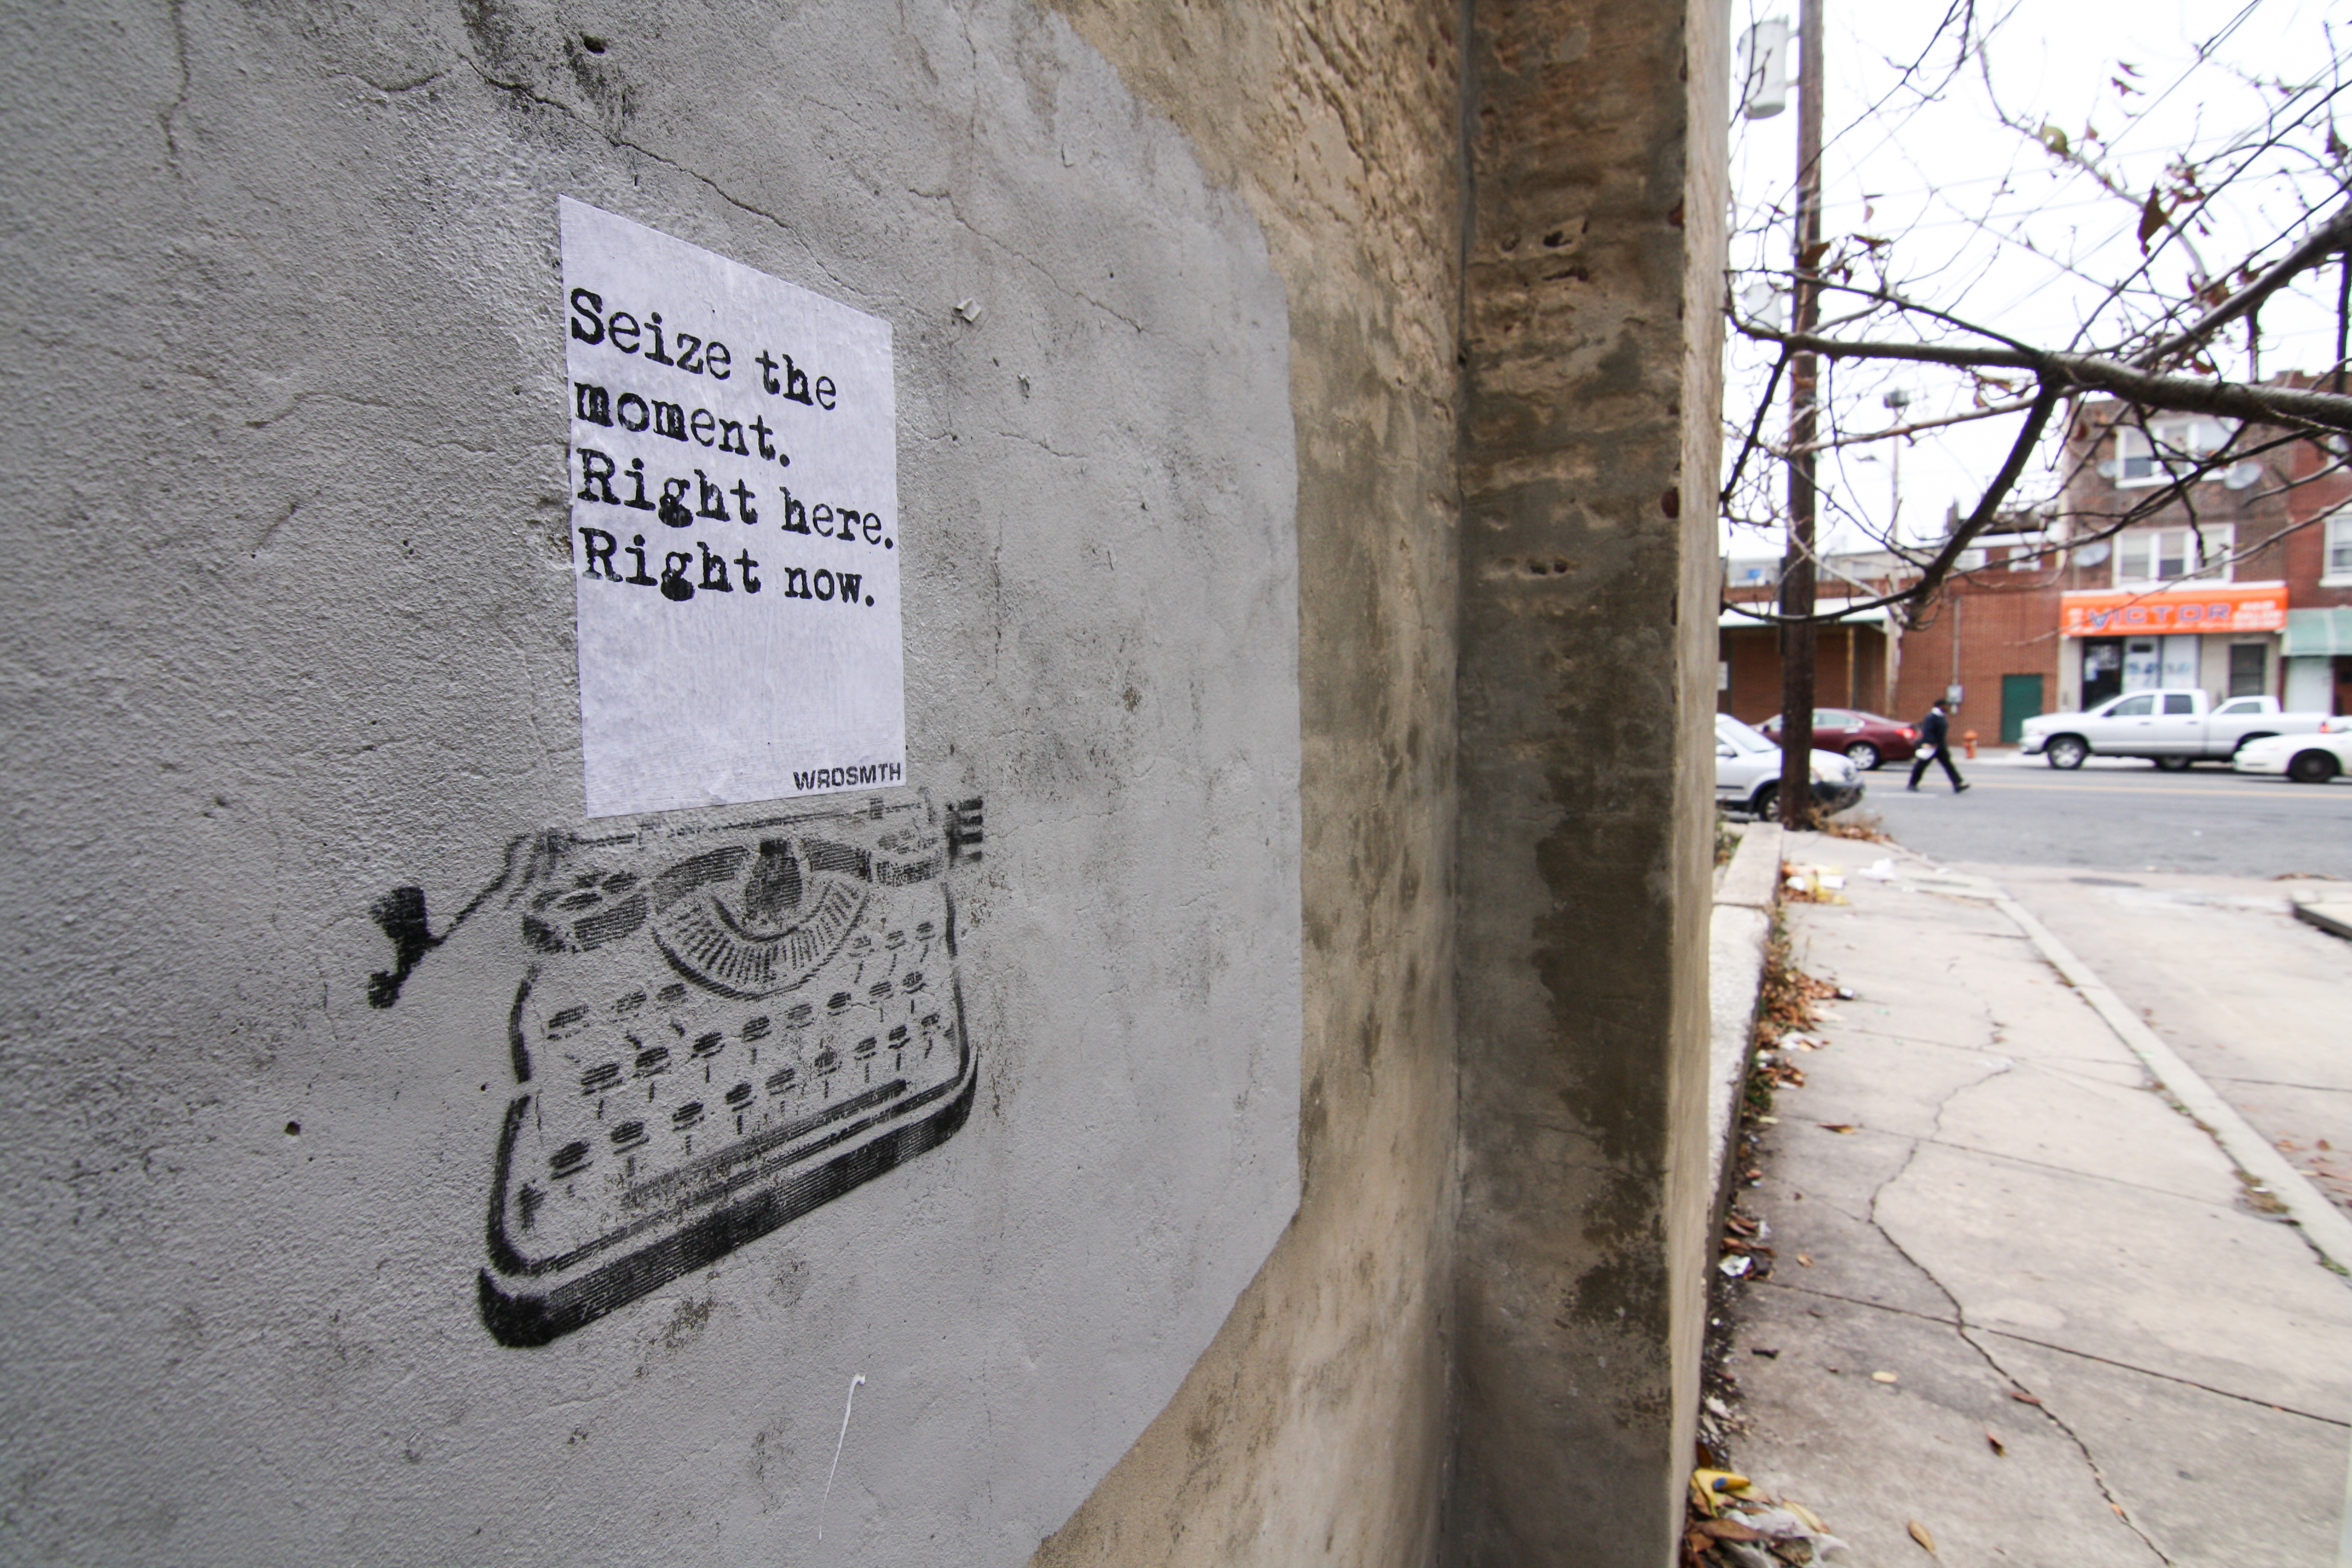 Seize the
moment.
Right here.
Right now.
WRDSMTH
VICTOR